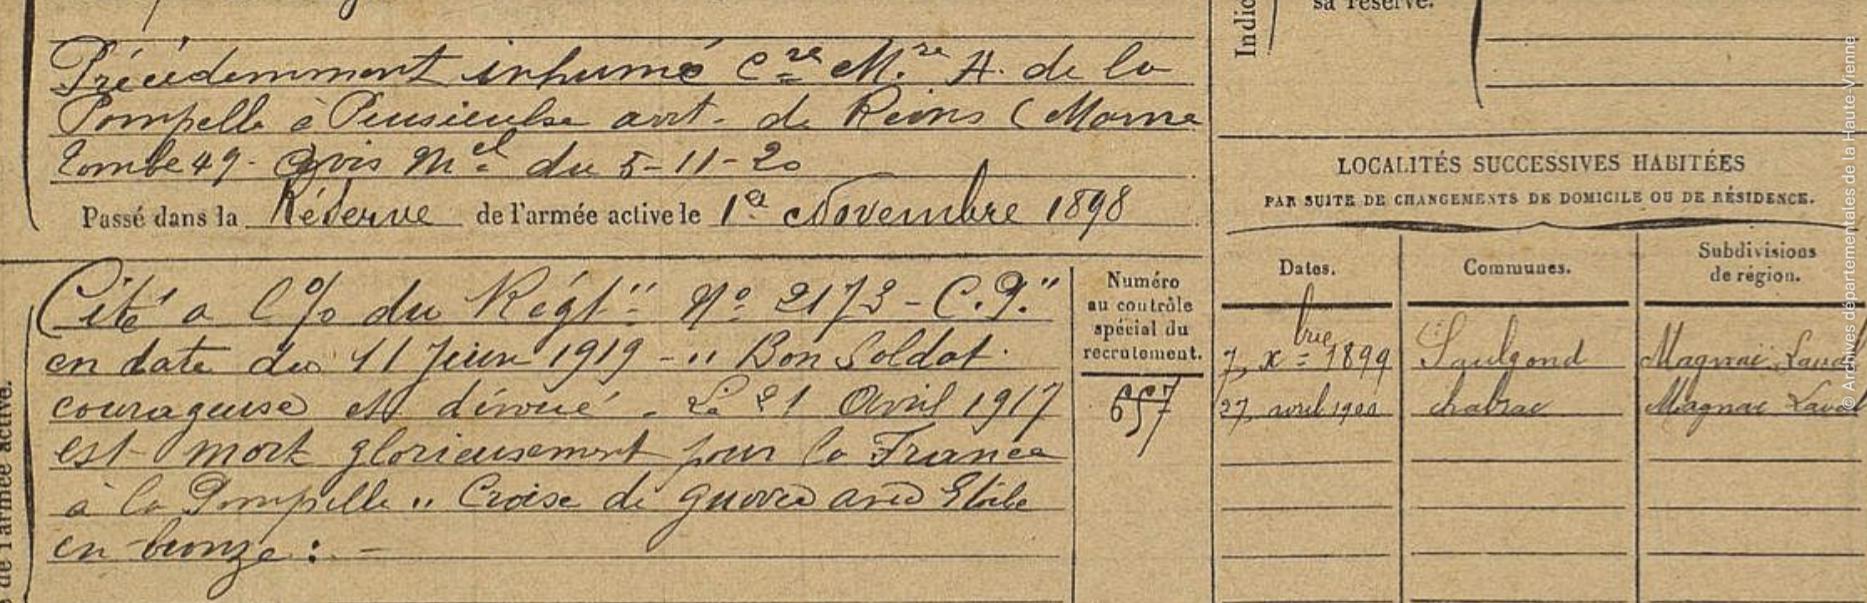 sa réserve.
Indic
Précédemment inhumé Cre Mre A. de la
Pompelle à Puisieulse arrt. de Reims (Marne
Tombe 49 - Avis Mel du 5-11-20
Passé dans la Réserve de l'armée active le 1er Novembre 1898
de l'armée active.
Cité a l'o/o du Régt " No 2173 - C.P."
en date du 11 Juin 1919 - " Bon Soldat
courageuse et dévoué - Le 21 Avril 1917
est mort glorieusement pour la France
à la Pompelle " Croise de guerre avec Etoile
en bronze : -
Numéro
au contrôle
spécial du
recrutement.
657
LOCALITÉS SUCCESSIVES HABITÉES
PAR SUITE DE CHANGEMENTS DE DOMICILE OU DE RÉSIDENCE.
Dates. Communes. Subdivisions de région.
7 Xbre 1899 Saulgond Magnac Laval
27 avril 1900 chabrac Magnac Laval
© Archives départementales de la Haute-Vienne